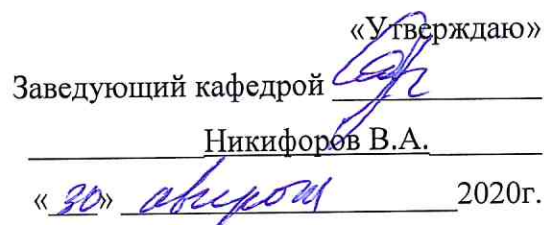 «Утверждаю»
Заведующий кафедрой
Никифоров В.А.
«30» 2020г.